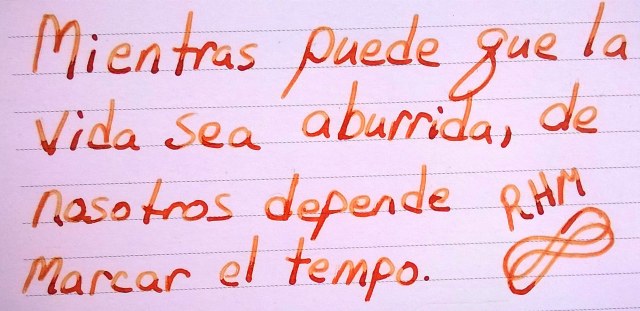 Mientras puede que la
vida sea aburrida, de
nosotros depende RHM
marcar el tempo.